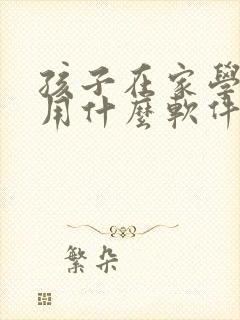 孩子在家學
用什麼軟件
繁朵